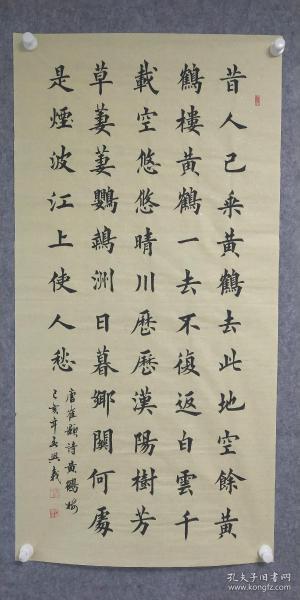 昔人已乘黃鶴去此地空餘黃
鶴樓黃鶴一去不復返白雲千
載空悠悠晴川歷歷漢陽樹芳
草萋萋鸚鵡洲日暮鄉關何處
是煙波江上使人愁
唐崔顥詩黃鶴樓
己亥年
孔夫子旧书网